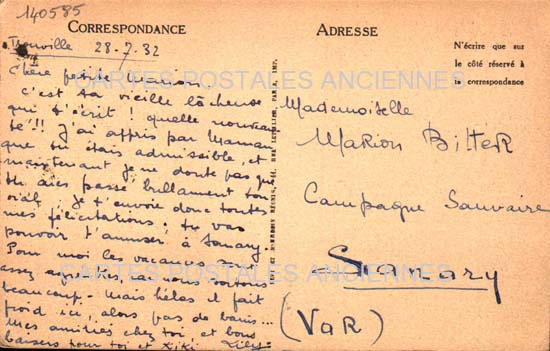 140585
CORRESPONDANCE
Trouville 28-7-32
Chère petite Marion.
C'est ta vieille lâcheuse
qui t'écrit ! quelle nouveau
té"!! J'ai appris par Maman
que tu étais admissible, et
maintenant je ne doute pas que
tu aies passé brillament ton
oral; je t'envoie donc toutes
mes félicitations; tu vas
pouvoir t'amuser à Sanary.
Pour moi les vacances sont
assez agréables, et nous sortons
beaucoup - mais hélas il fait
froid ici, alors pas de bains...
Mes amitiés chez toi et bons
baisers pour toi et Kiki
ADRESSE
N'écrire que sur
le côté réservé à
la correspondance
Mademoiselle
Marion Bilter
Campagne Sauvaire
Sanary
(VaR)
CARTES POSTALES ANCIENNES
CARTES POSTALES ANCIENNES